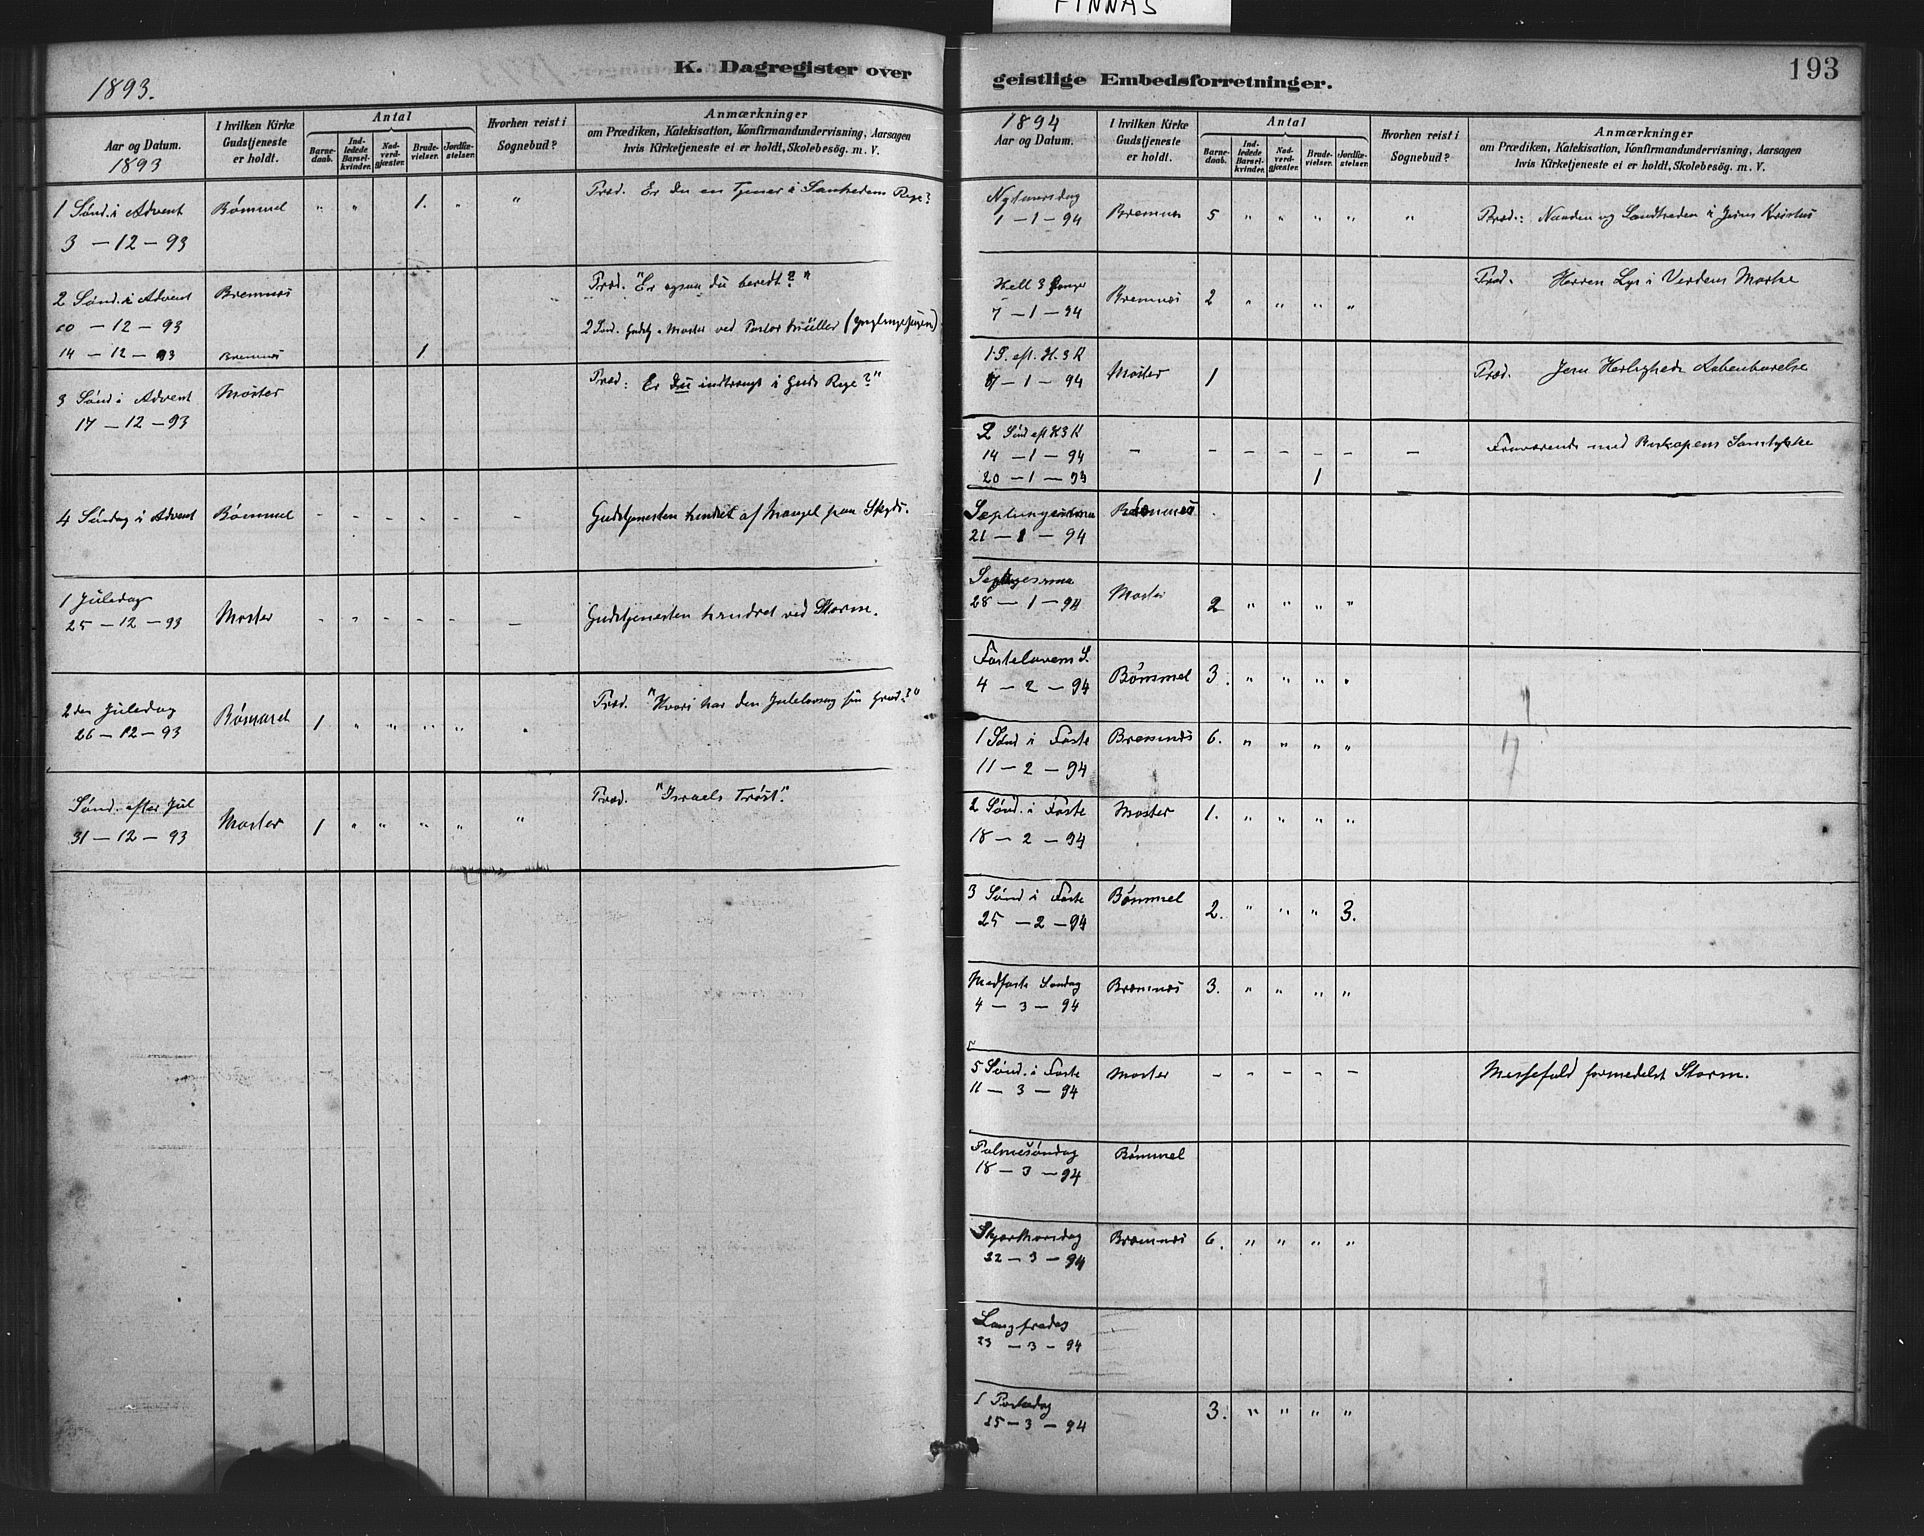 FINNÅS
193
K. Dagregister over geistlige Embedsforretninger.
1893.
Aar og Datum.
1893
I hvilken Kirke Gudstjeneste er holdt.
Antal
Barnedaab.
Indledede Barselkvinder.
Nadverdgjæster.
Brudevielser.
Jordfæstelser.
Hvorhen reist i Sognebud?
Anmærkninger
om Prædiken, Katekisation, Konfirmandundervisning, Aarsagen
hvis Kirketjeneste ei er holdt, Skolebesög. m. V.
1 Sønd. i Advent Bømmel " " 1. " " Præd. Er du en Tjener i Sandhedens Rige?
3 - 12 - 93
2 Sønd. i Advent Bremnes Præd. "Er ogsaa du beredt?"
10 - 12 - 93 2 Sønd. Gudstj. i Moster ved Pastor Müller
14 - 12 - 93 Bremnes 1
3 Sønd i Advent Moster Præd: Er Du indtrængt i Guds Rige?"
17 - 12 - 93
4 Søndag i Advent Bømmel - - - - - - Gudstjenesten hindret af Mangel paa Skyds.
1 Juledag
25 - 12 - 93 Moster - " - - - - Gudstjenesten hindret ved Storm.
2den Juledag Bømmel 1 " " " " " Præd. "Hvori har den Julelovsang sin Grund?"
26 - 12 - 93
Sønd. efter Jul Moster 1 " " " " " Præd. "Israels Trøst".
31 - 12 - 93
1894
Aar og Datum.
I hvilken Kirke Gudstjeneste er holdt.
Antal
Barnedaab.
Indledede Barselkvinder.
Nadverdgjæster.
Brudevielser.
Jordfæstelser.
Hvorhen reist i Sognebud?
Anmærkninger
om Prædiken, Katekisation, Konfirmandundervisning, Aarsagen
hvis Kirketjeneste ei er holdt, Skolebesög. m. V.
Nytaarsdag
1 - 1 - 94 Bremnes 5 " " " " " Præd.: Naaden og Sandheden i Jesus Kristus
Hell 3 Konger
7 - 1 - 94 Bremnes 2 " " " " Præd. Herren Lys i Verdens Mørke
1 S. eft. H. 3 K
7 - 1 - 94 Moster 1 Præd. Jesu Herligheds Aabenbarelse
2 Sønd eft H3 K
14 - 1 - 94 - - - - - - - Fraværende med Biskopens Samtykke
20 - 1 - 93 1
Septuagesima Bremnes
21 - 1 - 94
28 - 1 - 94 Moster 2 " " " "
Fastelavens S.
4 - 2 - 94 Bømmel 3. " " " "
1 Sønd i Faste Bremnes 6. " " " "
11 - 2 - 94
2 Sønd. i Faste Moster 1. " " " "
18 - 2 - 94
3 Sønd i Faste Bømmel 2. " " " 3.
25 - 2 - 94
Midfaste Søndag Bremnes 3. " " " "
4 - 3 - 94
5 Sønd. i Faste Moster - - - - - Messefald formedelst Storm.
11 - 3 - 94
Palmesøndag Bømmel
18 - 3 - 94
Skjærthorsdag Bremnes 6. " " " "
22 - 3 - 94
Langfredag
23 - 3 - 94
1 Paaskedag 3. " " " "
25 - 3 - 94